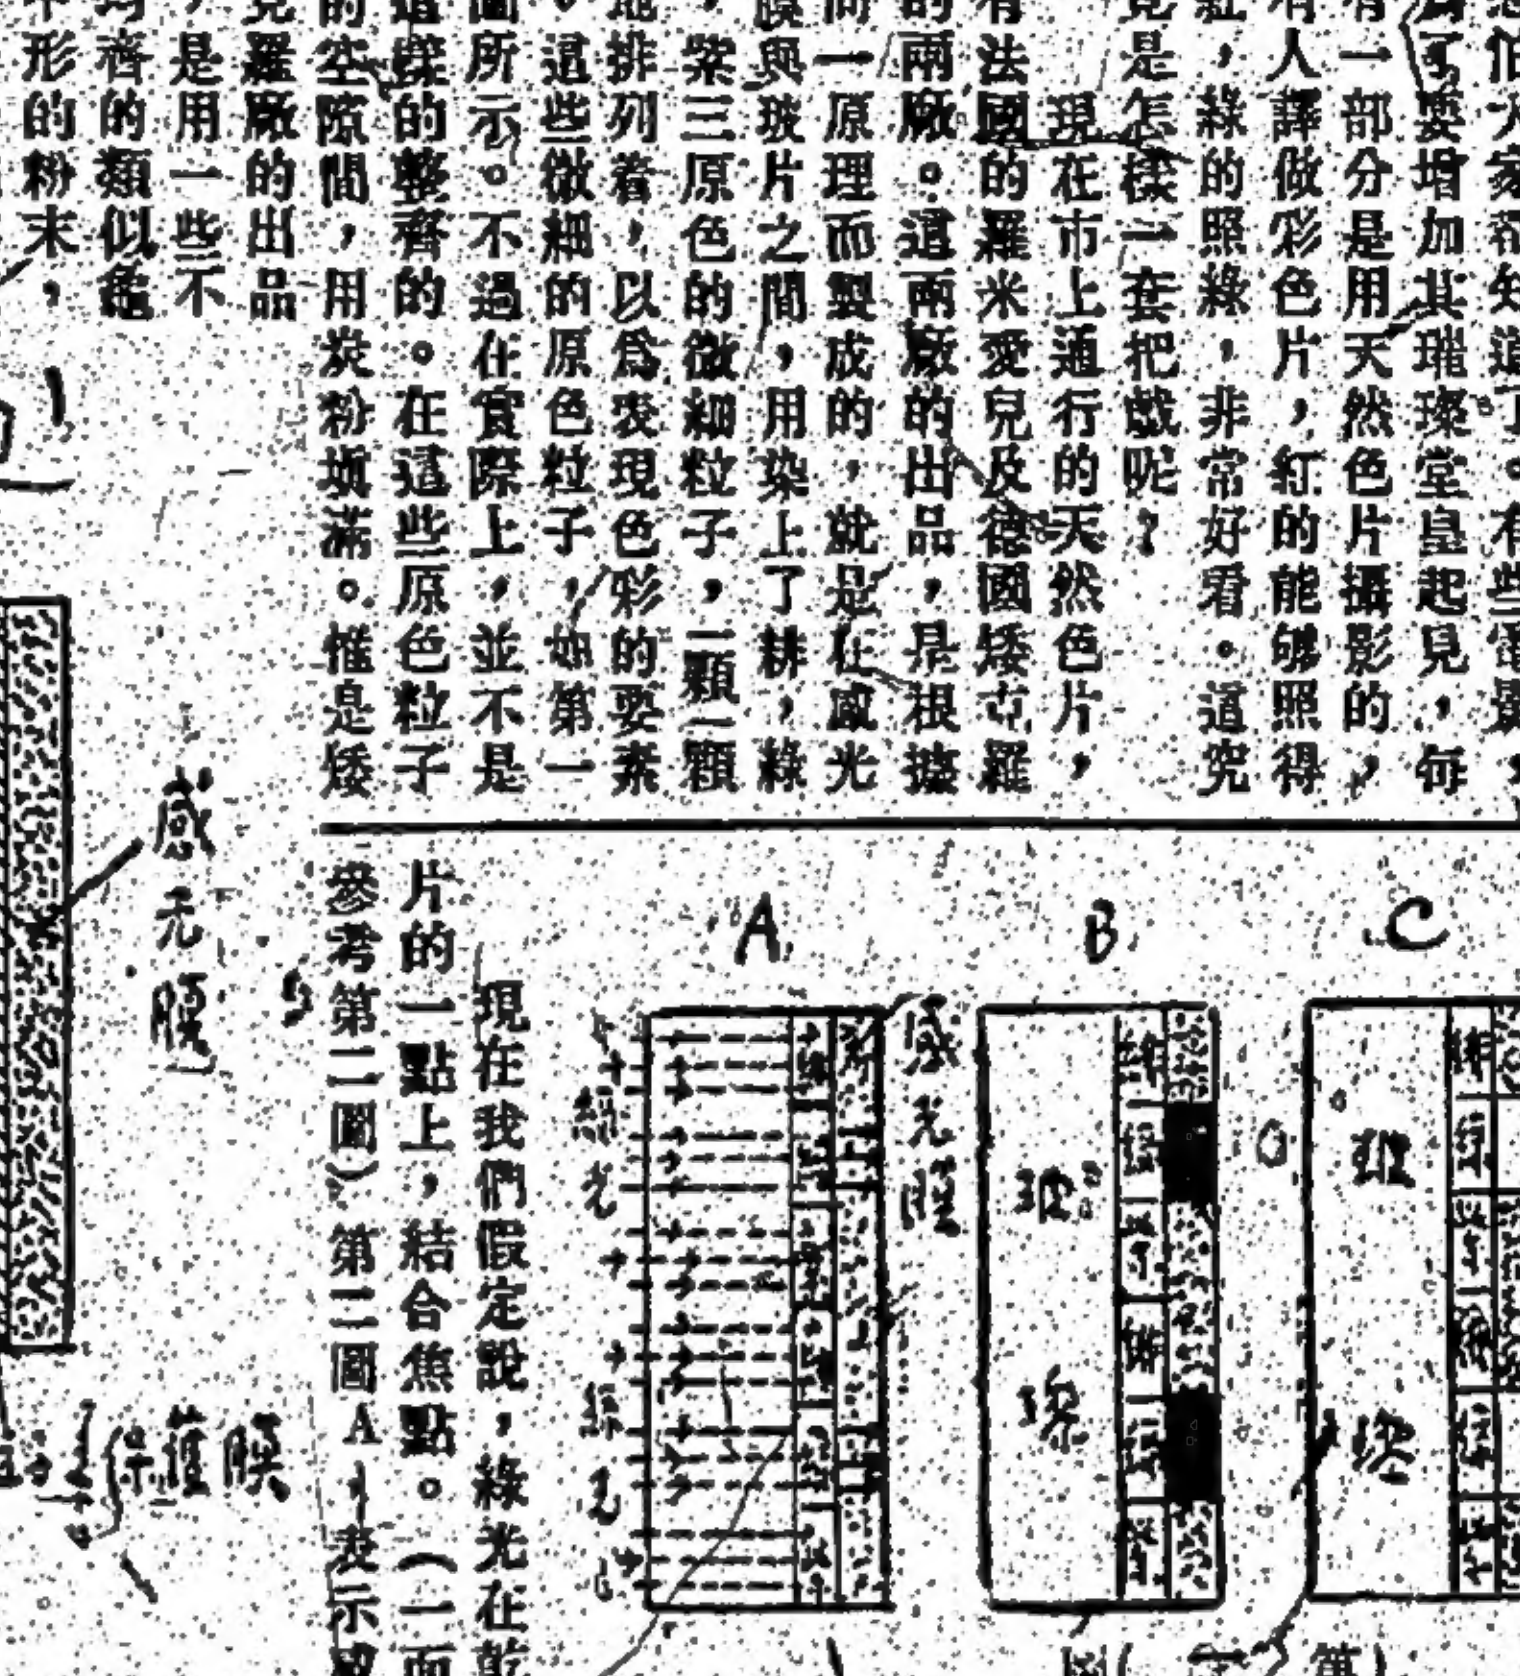 恐怕大家都知道了。有些電影，
爲可要增加其璀璨堂皇起見，每
有一部分是用天然色片攝影的，
有人譯做彩色片，紅的能够照得
紅，綠的照綠，非常好看。這究
竟是怎樣一套把戲呢？
現在市上通行的天然色片，
有法國的羅米愛兒及德國矮克羅
的兩廠。這兩廠的出品，是根據
同一原理而製成的，就是在感光
膜與玻片之間，用染上了耕，綠
，紫三原色的微細粒子，一顆一顆
地排列着，以爲表現色彩的要素
。這些微細的原色粒子，如第一
圖所示。不過在實際上，並不是
這樣的整齊的。在這些原色粒子
的空隙間，用炭粉塡滿。惟是矮
克羅廠的出品
，是用一些不
均齊的類似龜
形的粉末，
感光膜
保護膜
A
B
C
感光膜
綠光
綠光
玻
玻
現在我們假定說，綠光在乾
片的一點上，結合焦點。（一面
參考第二圖）第二圖A，表示感
第